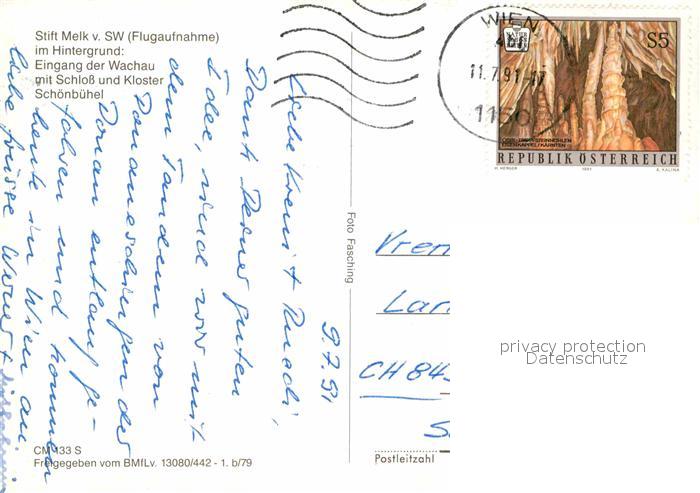 Stift Melk v. SW (Flugaufnahme)
im Hintergrund:
Eingang der Wachau
mit Schloß und Kloster
Schönbühel
9.7.91
Liebe Vreni + Ruedi,
Dank Deiner guten
Idee, sind wir mit
dem Tandem von
Donaueschingen der
Donau entlang ge-
fahren und kommen
heute in Wien an.
Liebe Grüsse Werner +
CM 133 S
Freigegeben vom BMfLv. 13080/442 - 1. b/79
Foto Fasching
WIEN
11.7.91
1150
S5
OBIR-TROPFSTEINHÖHLEN
EISENKAPPEL/KÄRNTEN
REPUBLIK ÖSTERREICH
H. HERGER 1991 A. KALINA
Vren
Lar
CH 84
S
Postleitzahl
privacy protection
Datenschutz